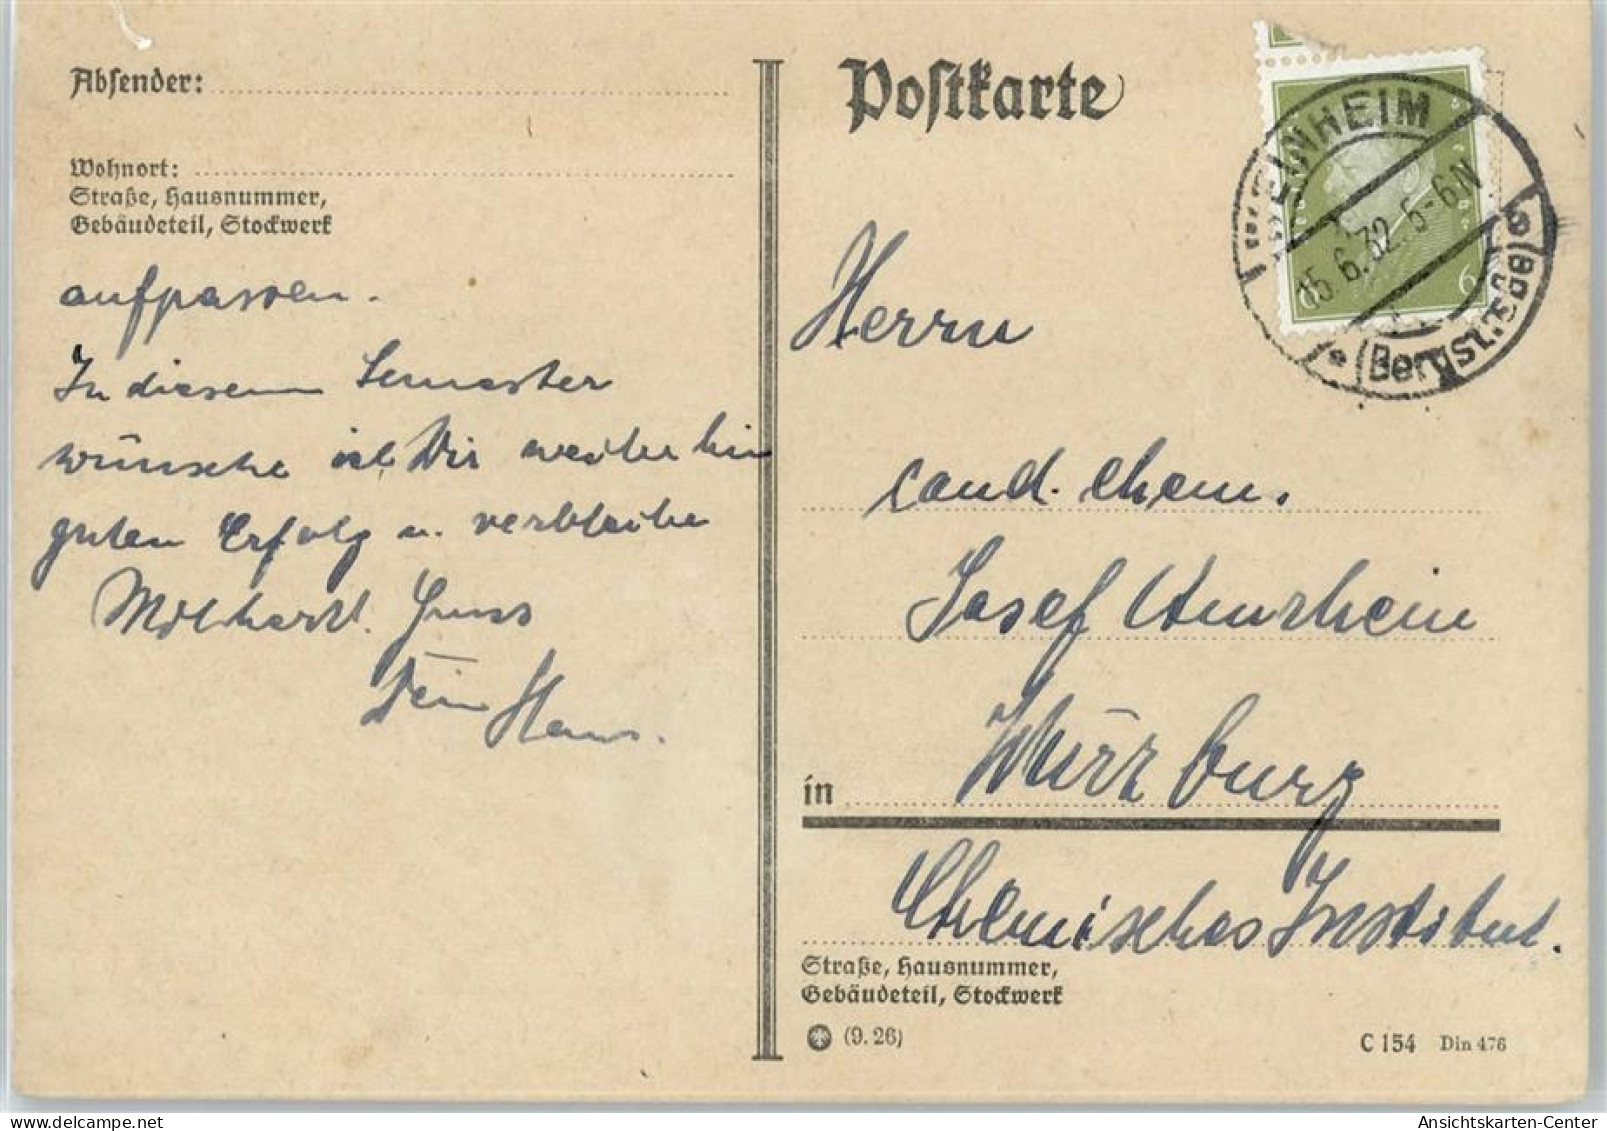 Absender:
Wohnort:
Straße, Hausnummer,
Gebäudeteil, Stockwerk
aufpassen.
In diesem Semester
wünsche ich Dir weiterhin
guten Erfolg u. verbleibe
Gruss
Dein Hans.
Postkarte
WEINHEIM
15.6.32.5-6N
(Bergstr.)
6
Herrn
cand. chem.
Josef Amrhein
in Würzburg
Chemisches Institut.
Straße, Hausnummer,
Gebäudeteil, Stockwerk
(9.26)
C 154 Din 476
Ansichtskarten-Center